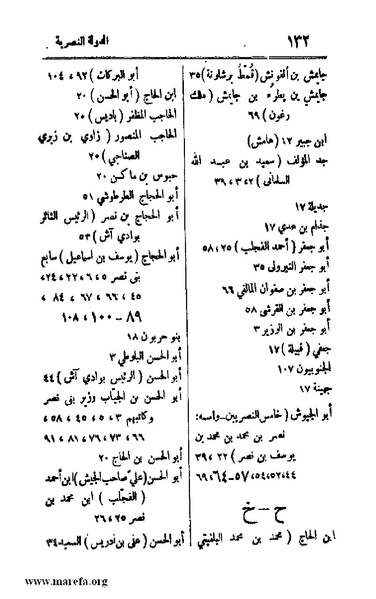 ١٣٢
الدولة النصرية
جايمش بن ألفونش (قُمْطُ برشلونة) ٣٥
جايمش بن بطره بن جايمش (ملك
رغون) ٦٩
ابن جبير ١٢ (هامش)
جد المؤلف (سعيد بن عبد الله
السلماني) ٣٩،٣،٢
جديلة ١٧
جذام بن عدي ١٧
أبو جعفر (أحمد الفجلب) ٥٨،٢٥
أبو جعفر التيرولى ٣٥
أبو جعفر بن صفوان المالقي ٦٦
أبو جعفر بن القرشى ٥٨
أبو جعفر بن الوزير ٣
جعفي (قبيلة) ١٧
الجنوبيون ١٠٧
جهينة ١٧
أبو الجيوش (خامس النصريين واسمه:
نصر بن محمد بن محمد بن
يوسف بن نصر) ٣٩،٢٢
٦٩،٦٤-٥٧،٥٤،٥٢،٤٤
ح-خ
ابن الحاج (محمد بن محمد البلفيقي
أبو البركات) ١٠٤،٩٢
ابن الحاج (أبو الحسن) ٢٠
الحاجب المظفر (باديس) ٢٠
الحاجب المنصور (زاوي بن زيري
الصناجي) ٢٠
حبوس بن ماكسن ٢٠
أبو الحجاج الطرطوشي ٥١
أبو الحجاج بن نصر (الرئيس الثائر
بوادي آش) ٥٣
أبو الحجاج (يوسف بن اسماعيل) سابع
بنى نصر ٢٤،٢٢،٦،٥
٨٤،٦٧،٦٦،٤٥
١٠٨،١٠٠-٨٩
بنو حربون ١٨
أبو الحسن البلوطي ٣
أبو الحسن (الرئيس بوادي آش) ٤٤
أبو الحسن بن الجياب وزير بنى نصر
وكاتبهم ٥٨،٤٥،٥،٣
٩١،٨١،٧٦،٧٣،٦٦
أبو الحسن بن الحاج ٢٠
أبو الحسن (علي صاحب الجيش) ابن أحمد
(الفجلّب) ابن محمد بن
نصر ٢٦،٢٥
أبو الحسن (على بن ادريس) السعيد ٣٤
www.marefa.org